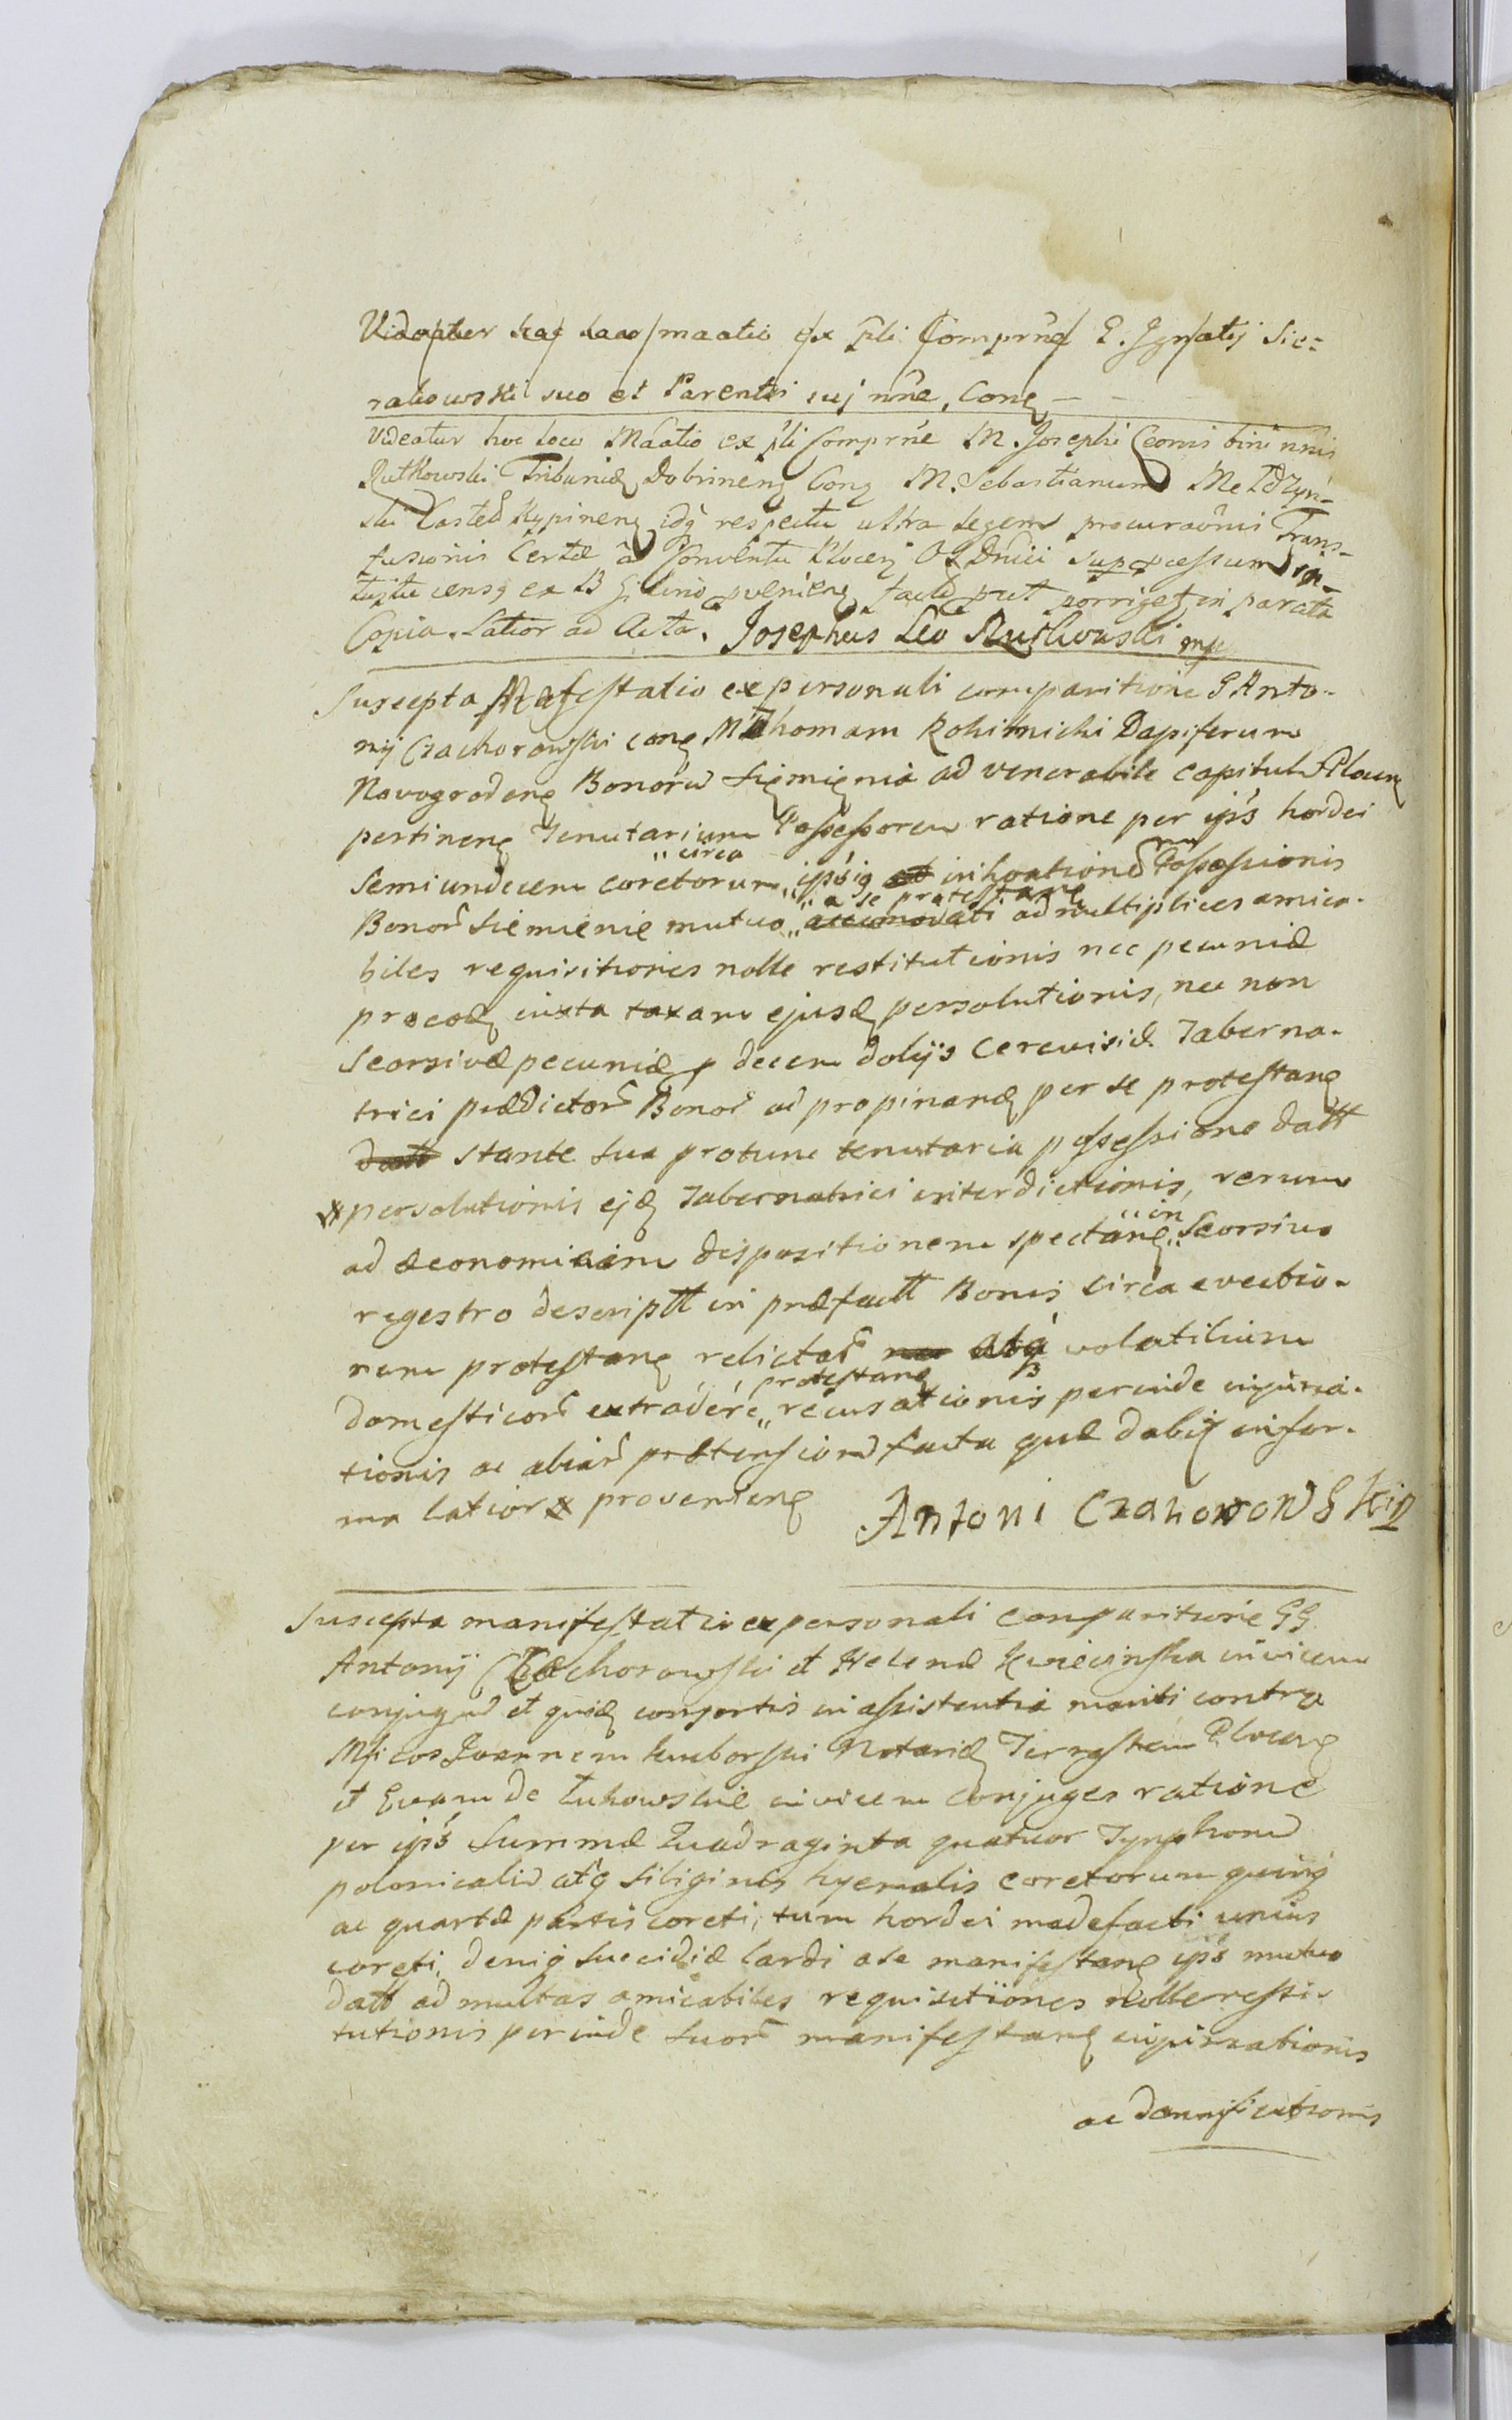 Videatur hac maatio ex pli Comprne G. Ignatij Sie=
rakowski suo et Parentis suj nne, Cong
Videatur hoc loco Maatio ex pli Comprne M. Josephi Leonis bini nnis
Rutkowski Tribunid Dobrinens Cong M. Sebastianum Mełdzyn-
ski Castell Rypinens idq respectu ultra legem procuraonis Trans-
fusionis Certæ a Conventu Plocen Od Dnici super censum in-
cens ex B pvenien facte put porriget in parata
Copia. Latior ad Acta. Josephus Leo Rutkowski mp
Suscepta Mafestatio ex personali comparitione G Anto-
nij Czachorowski cong M Thomam Rokitnicki Dapiferum
Novogrodens Bonoru Siemienia ad venerabile capitul Plocen
pertinens Tenutarium Possessorem ratione per ips hordei
Semiundecem coretorum „circa ipsiq et inhoatione Possessionis
Bonor Siemienie mutuo „a se protestane accomodati ad multiplices amica-
biles requisitiones nolle restitutionis nec pecuniæ
pro eod iuxta taxam ejusd persolutionis, nec non
Seorsivæ pecuniæ p decem dolijs Cerevisiæ Taberna-
trici prædictor Bonor ad propinand per se protestane
datt stante sua protunc tenutaria possessione datt
persolutionis ejd Tabernatrici interdictionis, rerum
ad æconomicam dispositionem spectane „in Seorsivo
regestro descriptt in præfactt Bonis circa evectio-
nem protestane relictar nec atq volatilium
domesticor extradere „protestane recusationis perinde injuria-
tionis ac aliar prætensiond facta quæ dabit infor-
ma latior proveniens Antoni Czahorowskip
Suscepta manifestatio ex personali comparitione GG
Antonij Czachorowski et Helenæ Kwiecinska invicem
conjugum et quid consortis in assistentia mariti contra
Mficos Joannem Kuborski Notarid Terrestrem Plocens
et Evam de Łukowskie invicem conjuges ratione
per ips Summæ Quadraginta quatuor Tymphond
polonicaliu atq siliginis hyemalis coretorum quinq
ac quartæ partis coreti, tum hordei madefacti unius
coreti, deniq succidiæ lardi a se manifestane ips mutuo
datt ad multas amicabiles requisitiones nolle resti-
tutionis perinde suor manifestane injuriationis
ac damnificationis